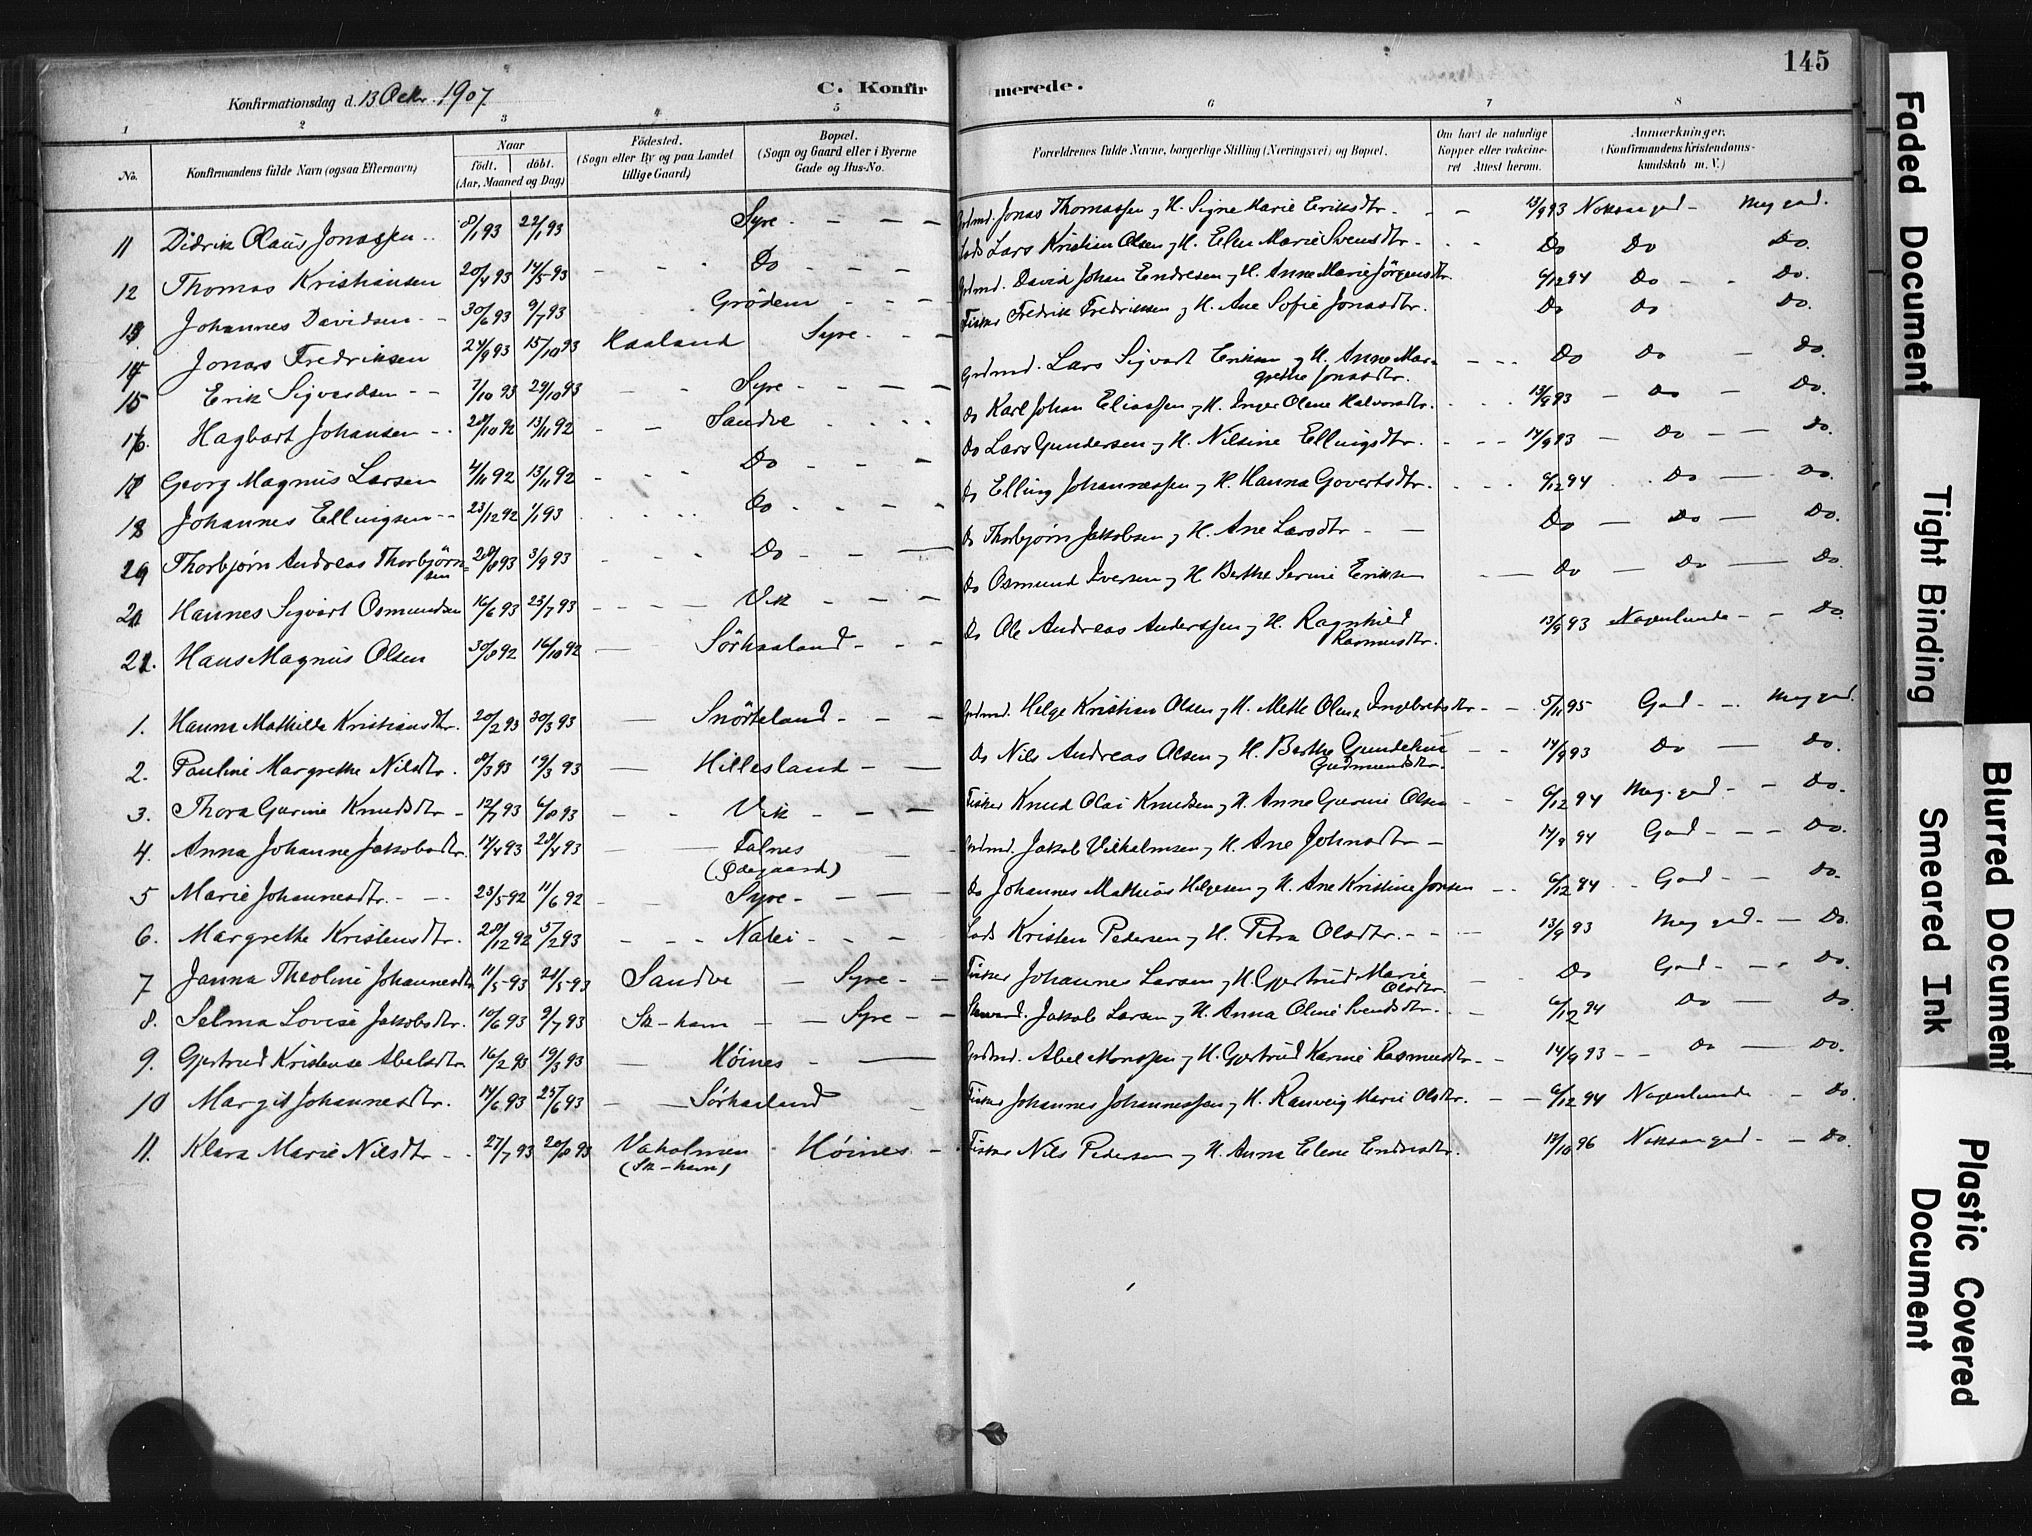 145
Konfirmationsdag d. 13 Octbr. 1907
C. Konfir merede.
1 2 3 4 5 6 7 8
No.
Konfirmandens fulde Navn (ogsaa Efternavn)
Naar
födt. döbt.
(Aar, Maaned og Dag)
Födested.
(Sogn eller By og paa Landet
tillige Gaard)
Bopæl.
(Sogn og Gaard eller i Byerne
Gade og Hus-No.
Forældrenes fulde Navne, borgerlige Stilling (Næringsvei) og Bopæl.
Om havt de naturlige
Kopper eller vakcine-
ret Attest herom.
Anmærkninger,
(Konfirmandens Kristendoms-
kundskab m. V.)
11 Didrik Olaus Jonassen 8/1 93 22/1 93 Syre Grdmd. Jonas Thomassen og H. Signe Marie Eriksdtr. 13/9 93 Noksaa god Meg god.
12 Thomas Kristiansen 20/4 93 14/5 93 Do Lods Lars Kristian Olsen og H. Elen Marie Svensdtr. Do Do Do.
13 Johannes Davidsen 30/6 93 9/7 93 Grödem Grdmd. David Johan Endresen og H. Anne Marie Jörgensdtr. 6/12 94 Do Do.
14 Jonas Fredriksen 24/9 93 15/10 93 Haaland Syre Fisker Fredrik Fredriksen og H. Ane Sofie Jonasdtr. Do Do Do.
15 Erik Sigvardsen 7/10 93 29/10 93 Syre Grdmd. Lars Sigvart Eriksen og H. Anne Mar-
grethe Jonasdtr. Do Do Do.
16. Hagbart Johansen 28/10 92 13/11 92 Sandve Do Karl Johan Eliassen og H. Inger Olene Halvorsdtr. 13/9 93 Do Do.
17 Georg Magnus Larsen 4/11 92 13/11 92 Do Do Lars Gundersen og H. Nilsine Ellingsdtr. 14/9 93 Do Do.
18 Johannes Ellingsen 23/12 92 1/1 93 Do Do Elling Johannessen og H. Hanna Govertsdtr. 6/12 94 Do Do.
Thorbjørn Andreas Thorbjörn-
sen 28/8 93 3/9 93 Do Do Thorbjørn Jakobsen og H. Ane Larsdtr Do Do Do.
Hannes Sigvart Osmundsen 16/6 93 23/7 93 Vik Do Osmund Iversen og H Berthe Serine Eriksen Do Do Do.
21. Hans Magnus Olsen 30/8 92 16/10 92 Sörhaaland Do Ole Andreas Anderssen og H. Ragnhild
Rasmusdtr. 13/9 93 Nogenlunde Do.
1. Hanna Mathilde Kristiansdtr. 20/2 93 30/3 93 Snörteland Grdmd. Helge Kristian Olsen og H. Mette Olene Ingebretsdtr 5/11 95 God Meg god.
2. Pauline Margrethe Nilsdtr. 8/3 93 19/3 93 Hillesland Do Nils Andreas Olsen og H. Berthe Gundeline
Gudmundsdtr. 14/9 93 Do Do.
3. Thora Gurine Knudsdtr 12/7 93 6/8 93 Vik Fisker Knud Olai Knudsen og H. Anne Gurine Olsen 6/12 94 Meg. god Do.
4. Anna Johanne Jakobsdtr. 14/4 93 28/4 93 Falnes
(Ødegaard) Grdmd. Jakob Vilhelmsen og H. Ane Johnsdtr 14/9 94 God Do.
5 Marie Johannesdtr. 23/5 92 11/6 92 Syre Do Johannes Mathias Helgesen og H. Ane Kristine Jonsen 6/12 94 God Do.
6. Margrethe Kristensdtr. 28/12 92 5/2 93 Nalei Lods Kristen Pedersen og H. Petra Olsdtr. 13/9 93 Meg god Do.
7 Janna Theoline Johannesdtr 11/5 93 21/5 93 Sandve Syre Fisker Johannes Larsen og H. Gjertrud Marie
Olsdtr. Do God Do.
8. Selma Lovise Jakobsdtr. 10/6 93 9/7 93 Sk-havn Syre Jakob Larsen og H. Anna Oline Svendsdtr. 6/12 94 Do Do.
9. Gjertrud Kristense Abelsdtr 16/2 93 19/3 93 Høines Grdmd. Abel Monssen og H. Gjertrud Karine Rasmusdtr 14/9 93 Do Do.
10 Margit Johannesdtr. 14/6 93 25/6 93 Sørhaaland Fisker Johannes Johannessen og H. Ranveig Marie Olsdtr. 6/12 94 Nogenlunde Do.
11. Klara Marie Nilsdtr 27/7 93 20/8 93 Vaholmen
(Sk-havn) Høines Fisker Nils Pedersen og H. Anna Elene Endresdtr. 14/10 96 Noksaa god Do.
Faded Document
Tight Binding
Blurred Document
Smeared Ink
Plastic Covered
Document